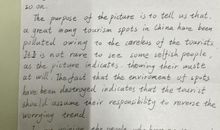 so on.
The purpose of the picture is to tell us that,
a great many tourism spots in China have been
polluted owing to the careless of the tourists.
It is not rare to see some selfish people
as the picture indicates, throwing their waste
at will. The fact that the environment of spots
have been destroyed indicates that the tourist
should assume their responsibility to reverse the
worrying trend.